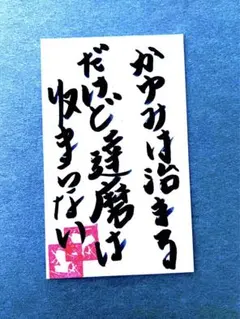 かゆみは治まる
だけど達磨は
収まらない